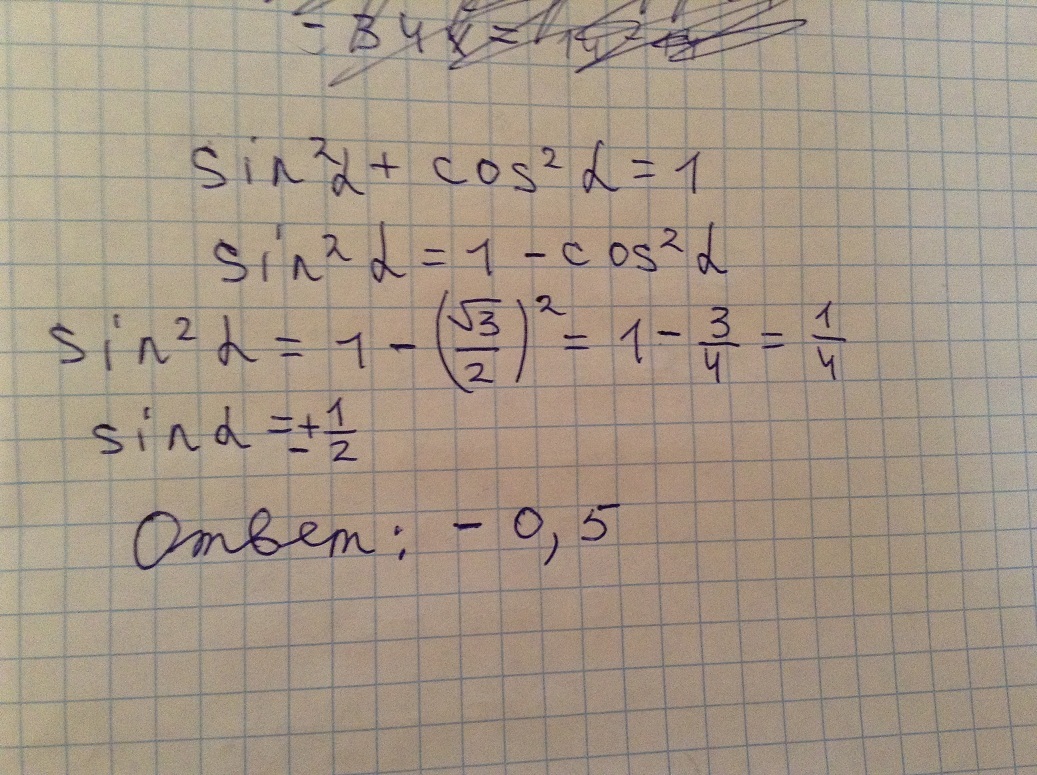 sin²α + cos²α = 1
sin²α = 1 - cos²α
sin²α = 1 - (√3/2)² = 1 - 3/4 = 1/4
sinα = ±1/2
Ответ: - 0,5